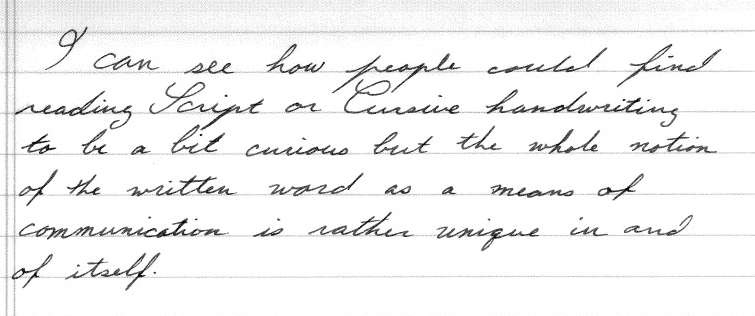 I can see how people could find
reading Script or Cursive handwriting
to be a bit curious but the whole notion
of the written word as a means of
communication is rather unique in and
of itself.